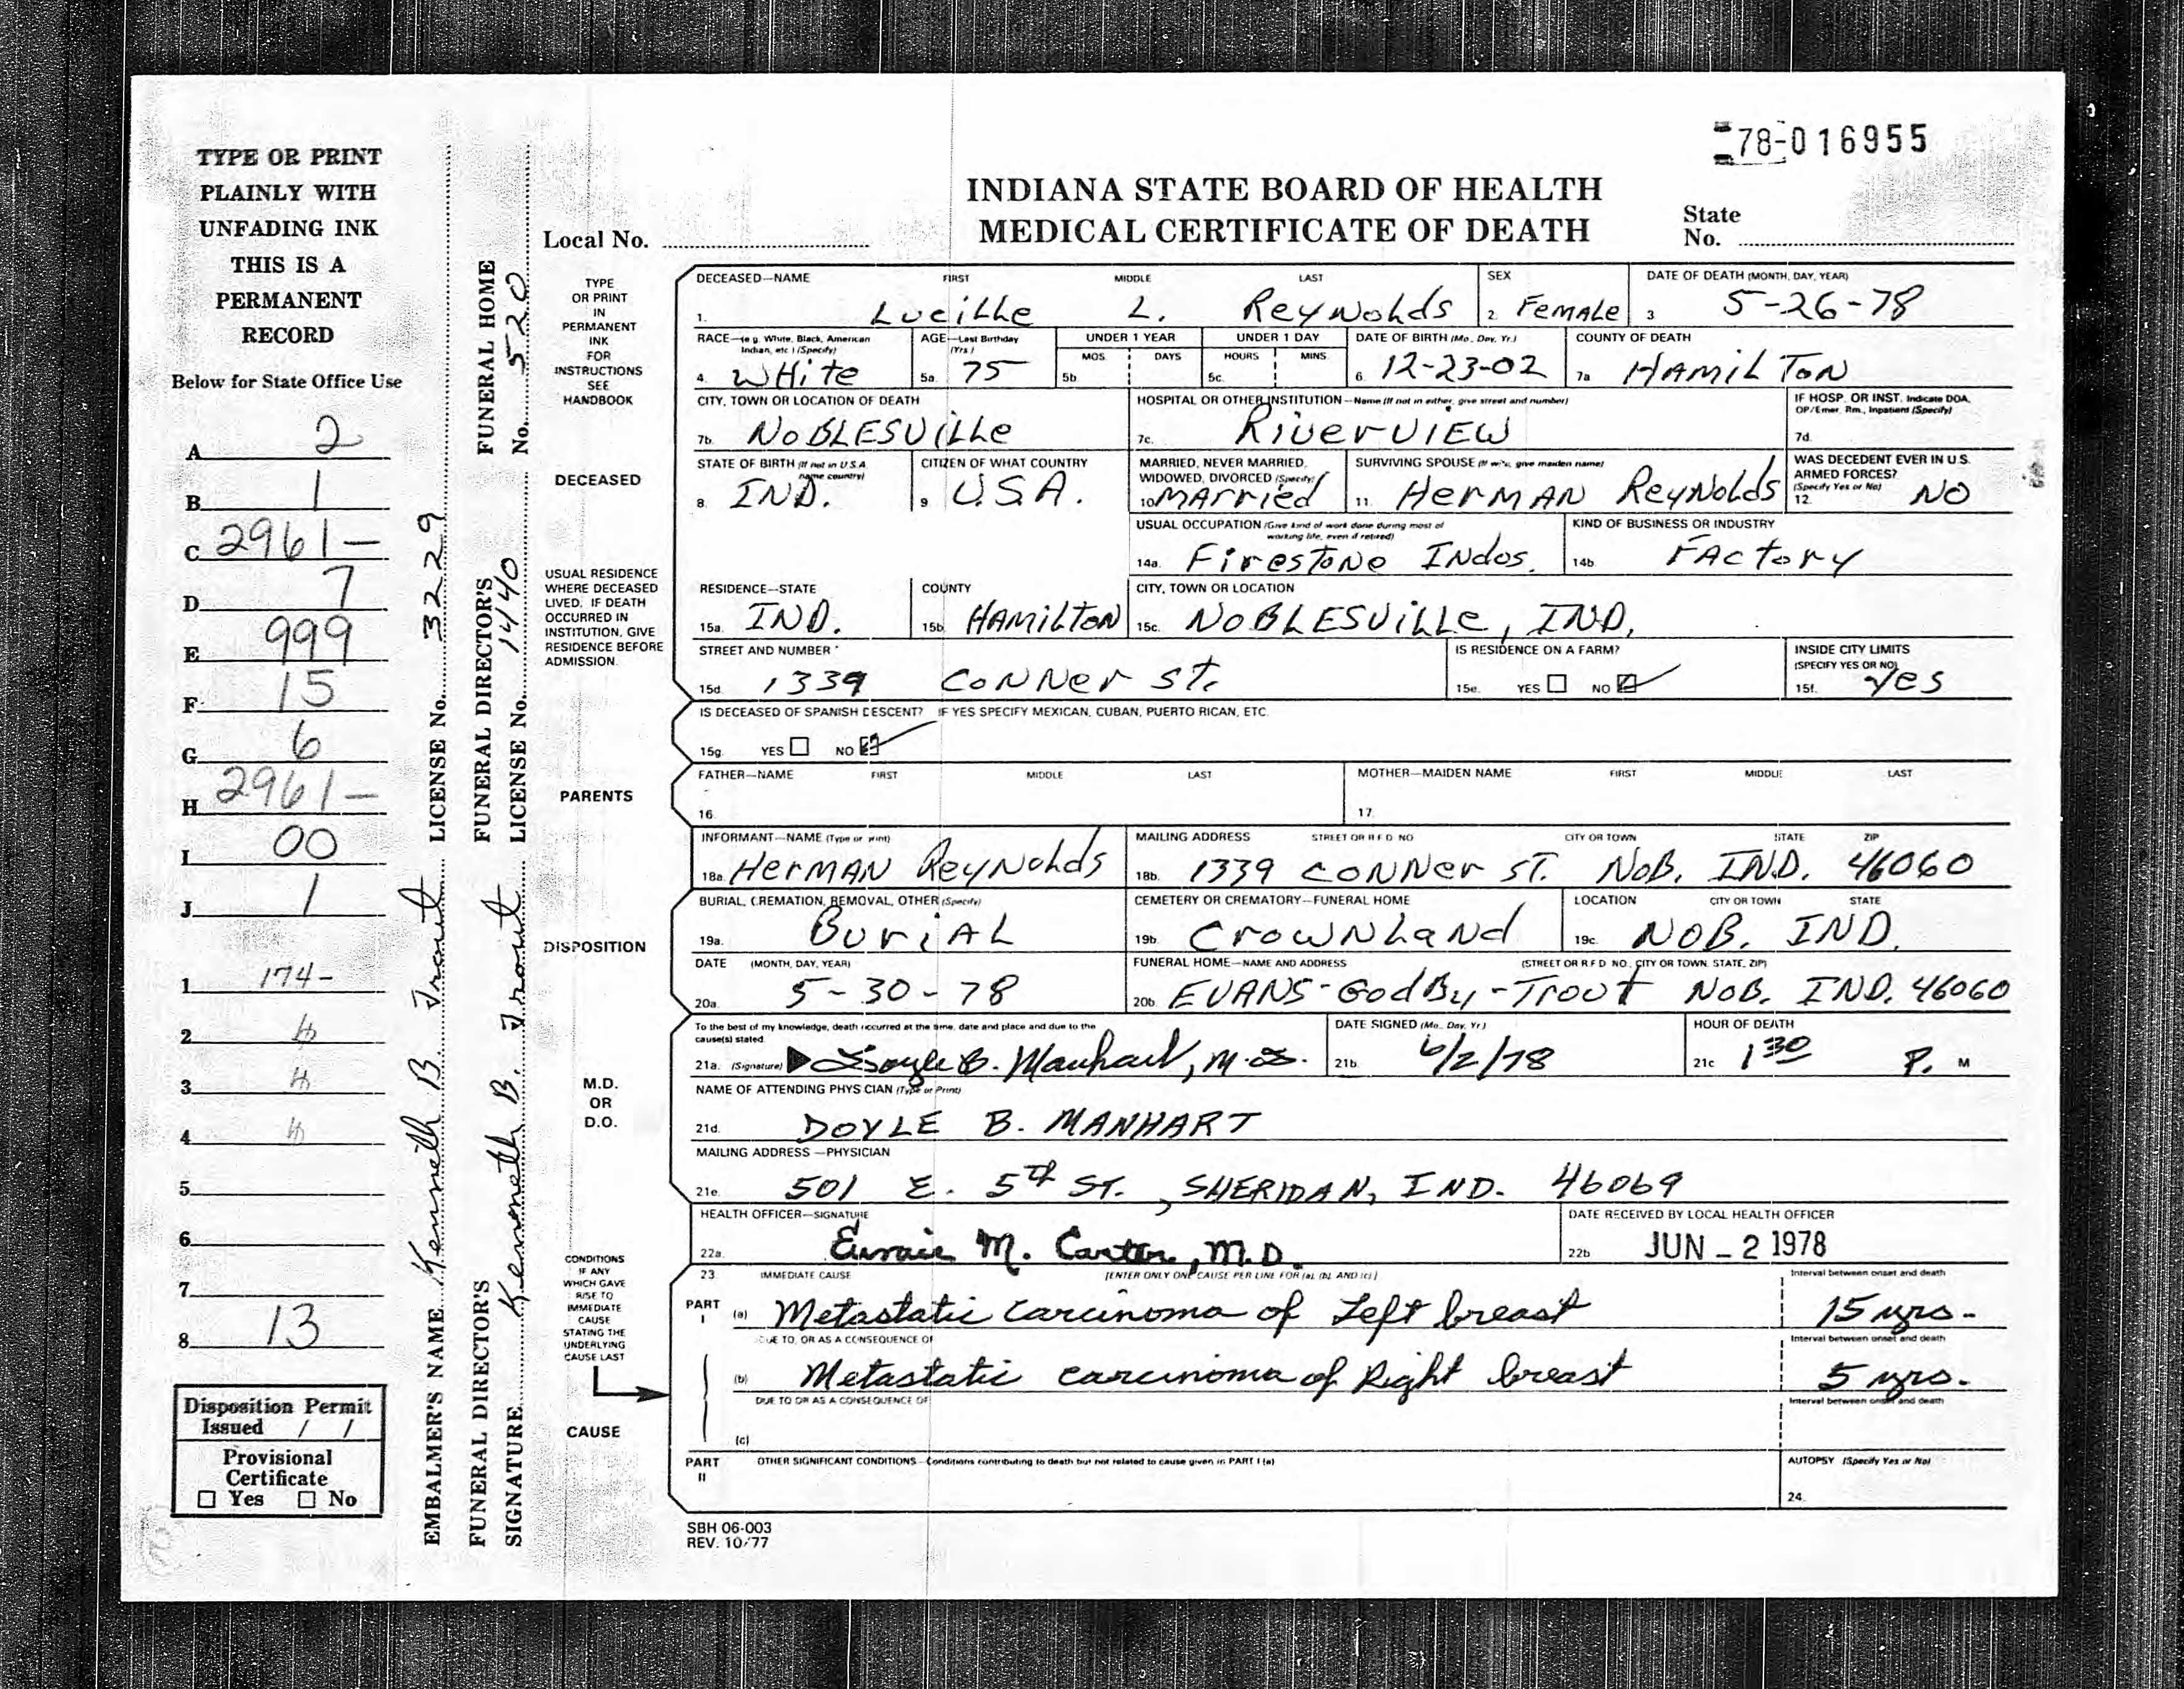 78-016955
INDIANA STATE BOARD OF HEALTH
MEDICAL CERTIFICATE OF DEATH
Local No.
State
No.
TYPE OR PRINT
PLAINLY WITH
UNFADING INK
THIS IS A
PERMANENT
RECORD
Below for State Office Use
A 2
B 1
C 2961-
D 7
E 999
F 15
G 6
H 2961-
I 00
J 1
1 174-
2
3
4
5
6
7
8 13
Disposition Permit
Issued / /
Provisional
Certificate
☐ Yes ☐ No
EMBALMER'S NAME Kenneth B. Trout LICENSE No. 3229
FUNERAL DIRECTOR'S
SIGNATURE Kenneth B. Trout
FUNERAL DIRECTOR'S
LICENSE No. 1440
FUNERAL HOME
No. 520
TYPE
OR PRINT
IN
PERMANENT
INK
FOR
INSTRUCTIONS
SEE
HANDBOOK
DECEASED
USUAL RESIDENCE
WHERE DECEASED
LIVED. IF DEATH
OCCURRED IN
INSTITUTION, GIVE
RESIDENCE BEFORE
ADMISSION.
PARENTS
DISPOSITION
M.D.
OR
D.O.
CONDITIONS
IF ANY
WHICH GAVE
RISE TO
IMMEDIATE
CAUSE
STATING THE
UNDERLYING
CAUSE LAST
CAUSE
DECEASED—NAME FIRST MIDDLE LAST SEX DATE OF DEATH (MONTH, DAY, YEAR)
1. Lucille L. Reynolds 2. Female 3 5-26-78
RACE—(e.g. White, Black, American Indian, etc.) (Specify) AGE—Last Birthday (Yrs.) UNDER 1 YEAR UNDER 1 DAY DATE OF BIRTH (Mo., Day, Yr.) COUNTY OF DEATH
MOS. DAYS HOURS MINS.
4. White 5a. 75 5b. 5c. 6. 12-23-02 7a HAMILTON
CITY, TOWN OR LOCATION OF DEATH HOSPITAL OR OTHER INSTITUTION—Name (If not in either, give street and number) IF HOSP. OR INST. Indicate DOA, OP/Emer. Rm., Inpatient (Specify)
7b. NOBLESVILLE 7c. RiverVIEW 7d.
STATE OF BIRTH (If not in U.S.A. name country) CITIZEN OF WHAT COUNTRY MARRIED, NEVER MARRIED, WIDOWED, DIVORCED (Specify) SURVIVING SPOUSE (If wife, give maiden name) WAS DECEDENT EVER IN U.S. ARMED FORCES? (Specify Yes or No)
8. IND. 9 U.S.A. 10. MArried 11. HerMAN ReyNolds 12. NO
USUAL OCCUPATION (Give kind of work done during most of working life, even if retired) KIND OF BUSINESS OR INDUSTRY
14a. FirestoNe Indos. 14b. FActory
RESIDENCE—STATE COUNTY CITY, TOWN OR LOCATION
15a. IND. 15b. HAMILTON 15c. NOBLESVILLE, IND.
STREET AND NUMBER IS RESIDENCE ON A FARM? INSIDE CITY LIMITS (SPECIFY YES OR NO)
15d. 1339 CONNer St. 15e. YES ☐ NO ☑ 15f. Yes
IS DECEASED OF SPANISH DESCENT? IF YES SPECIFY MEXICAN, CUBAN, PUERTO RICAN, ETC.
15g. YES ☐ NO ☑
FATHER—NAME FIRST MIDDLE LAST MOTHER—MAIDEN NAME FIRST MIDDLE LAST
16. 17.
INFORMANT—NAME (Type or print) MAILING ADDRESS STREET OR R.F.D. NO. CITY OR TOWN STATE ZIP
18a. HerMAN ReyNolds 18b. 1339 CONNer ST. NOB. IND. 46060
BURIAL, CREMATION, REMOVAL, OTHER (Specify) CEMETERY OR CREMATORY—FUNERAL HOME LOCATION CITY OR TOWN STATE
19a. BuriAL 19b. CrowNLaNd 19c. NOB. IND.
DATE (MONTH, DAY, YEAR) FUNERAL HOME—NAME AND ADDRESS (STREET OR R.F.D. NO., CITY OR TOWN, STATE, ZIP)
20a. 5-30-78 20b. EVANS-GodBy-Trout NOB. IND. 46060
To the best of my knowledge, death occurred at the time, date and place and due to the cause(s) stated. DATE SIGNED (Mo., Day, Yr.) HOUR OF DEATH
21a. (Signature) Doyle B. Manhart, M.D. 21b. 6/2/78 21c 1 30 P. M
NAME OF ATTENDING PHYSICIAN (Type or Print)
21d. DOYLE B. MANHART
MAILING ADDRESS—PHYSICIAN
21e. 501 E. 5TH ST., SHERIDAN, IND. 46069
HEALTH OFFICER—SIGNATURE DATE RECEIVED BY LOCAL HEALTH OFFICER
22a. M. Carter, M.D. 22b. JUN - 2 1978
23. IMMEDIATE CAUSE [ENTER ONLY ONE CAUSE PER LINE FOR (a), (b), AND (c)] Interval between onset and death
PART I (a) Metastatic carcinoma of Left breast 15 yrs.
DUE TO, OR AS A CONSEQUENCE OF Interval between onset and death
(b) Metastatic carcinoma of Right breast 5 yrs.
DUE TO OR AS A CONSEQUENCE OF Interval between onset and death
(c)
PART II OTHER SIGNIFICANT CONDITIONS—Conditions contributing to death but not related to cause given in PART I (a) AUTOPSY (Specify Yes or No)
24.
SBH 06-003
REV. 10/77